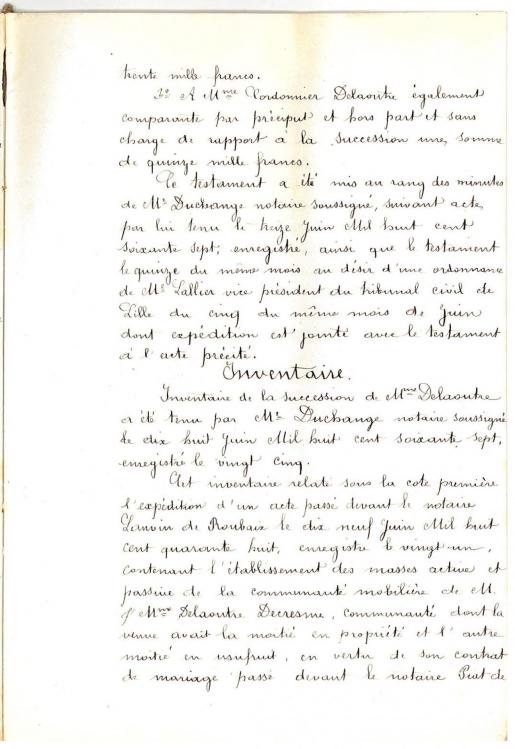 trente mille francs.
3º A Mme Cordonnier Delaoutre également
comparante par préciput et hors part et sans
charge de rapport à la succession une somme
de quinze mille francs.
Ce testament a été mis au rang des minutes
de Me Duchange notaire soussigné, suivant acte
par lui tenu le treize Juin Mil huit cent
soixante sept, enregistré, ainsi que le testament
le quinze du même mois au désir d'une ordonnance
de Mr Lallier vice président du tribunal civil de
Lille du cinq du même mois de Juin
dont expédition est jointe avec le testament
à l'acte précité.
Inventaire.
Inventaire de la succession de Mme Delaoutre
a été tenu par Me Duchange notaire soussigné
le dix huit Juin Mil huit cent soixante sept,
enregistré le vingt cinq.
Cet inventaire relate sous la cote première
l'expédition d'un acte passé devant le notaire
Lanvin de Roubaix le dix neuf Juin Mil huit
cent quarante huit, enregistré le vingt un,
contenant l'établissement des masses active et
passive de la communauté mobilière de M.
& Mme Delaoutre Decresme, communauté dont la
veuve avait la moitié en propriété et l'autre
moitié en usufruit, en vertu de son contrat
de mariage passé devant le notaire Piat de